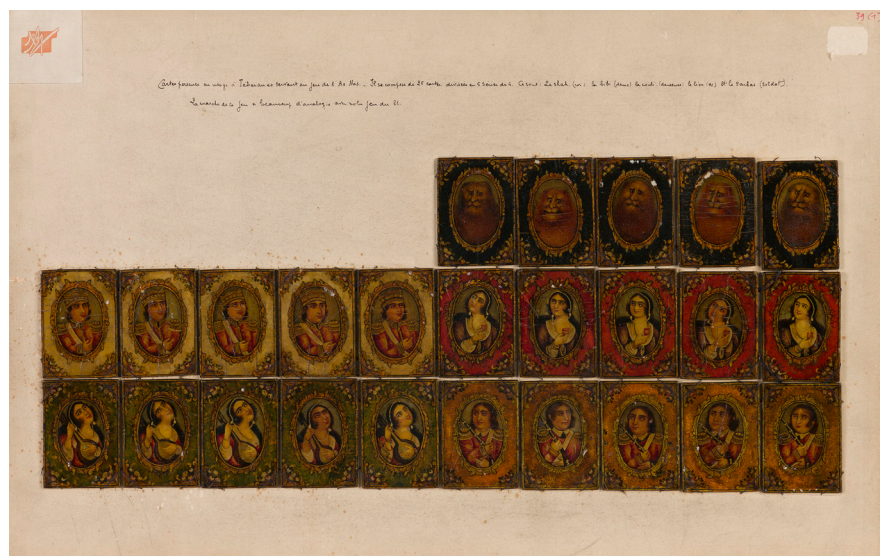 39 (T)
Cartes persanes en usage à Téheran et servant au jeu de l'As Nas. Il se compose de 25 cartes divisées en 5 séries de 5. Ce sont: Le shah (roi) la bibi (dame) la couli (danseuse) le lion (as) et le sarbas (soldat).
La marche de ce jeu a beaucoup d'analogie avec notre jeu du 31.